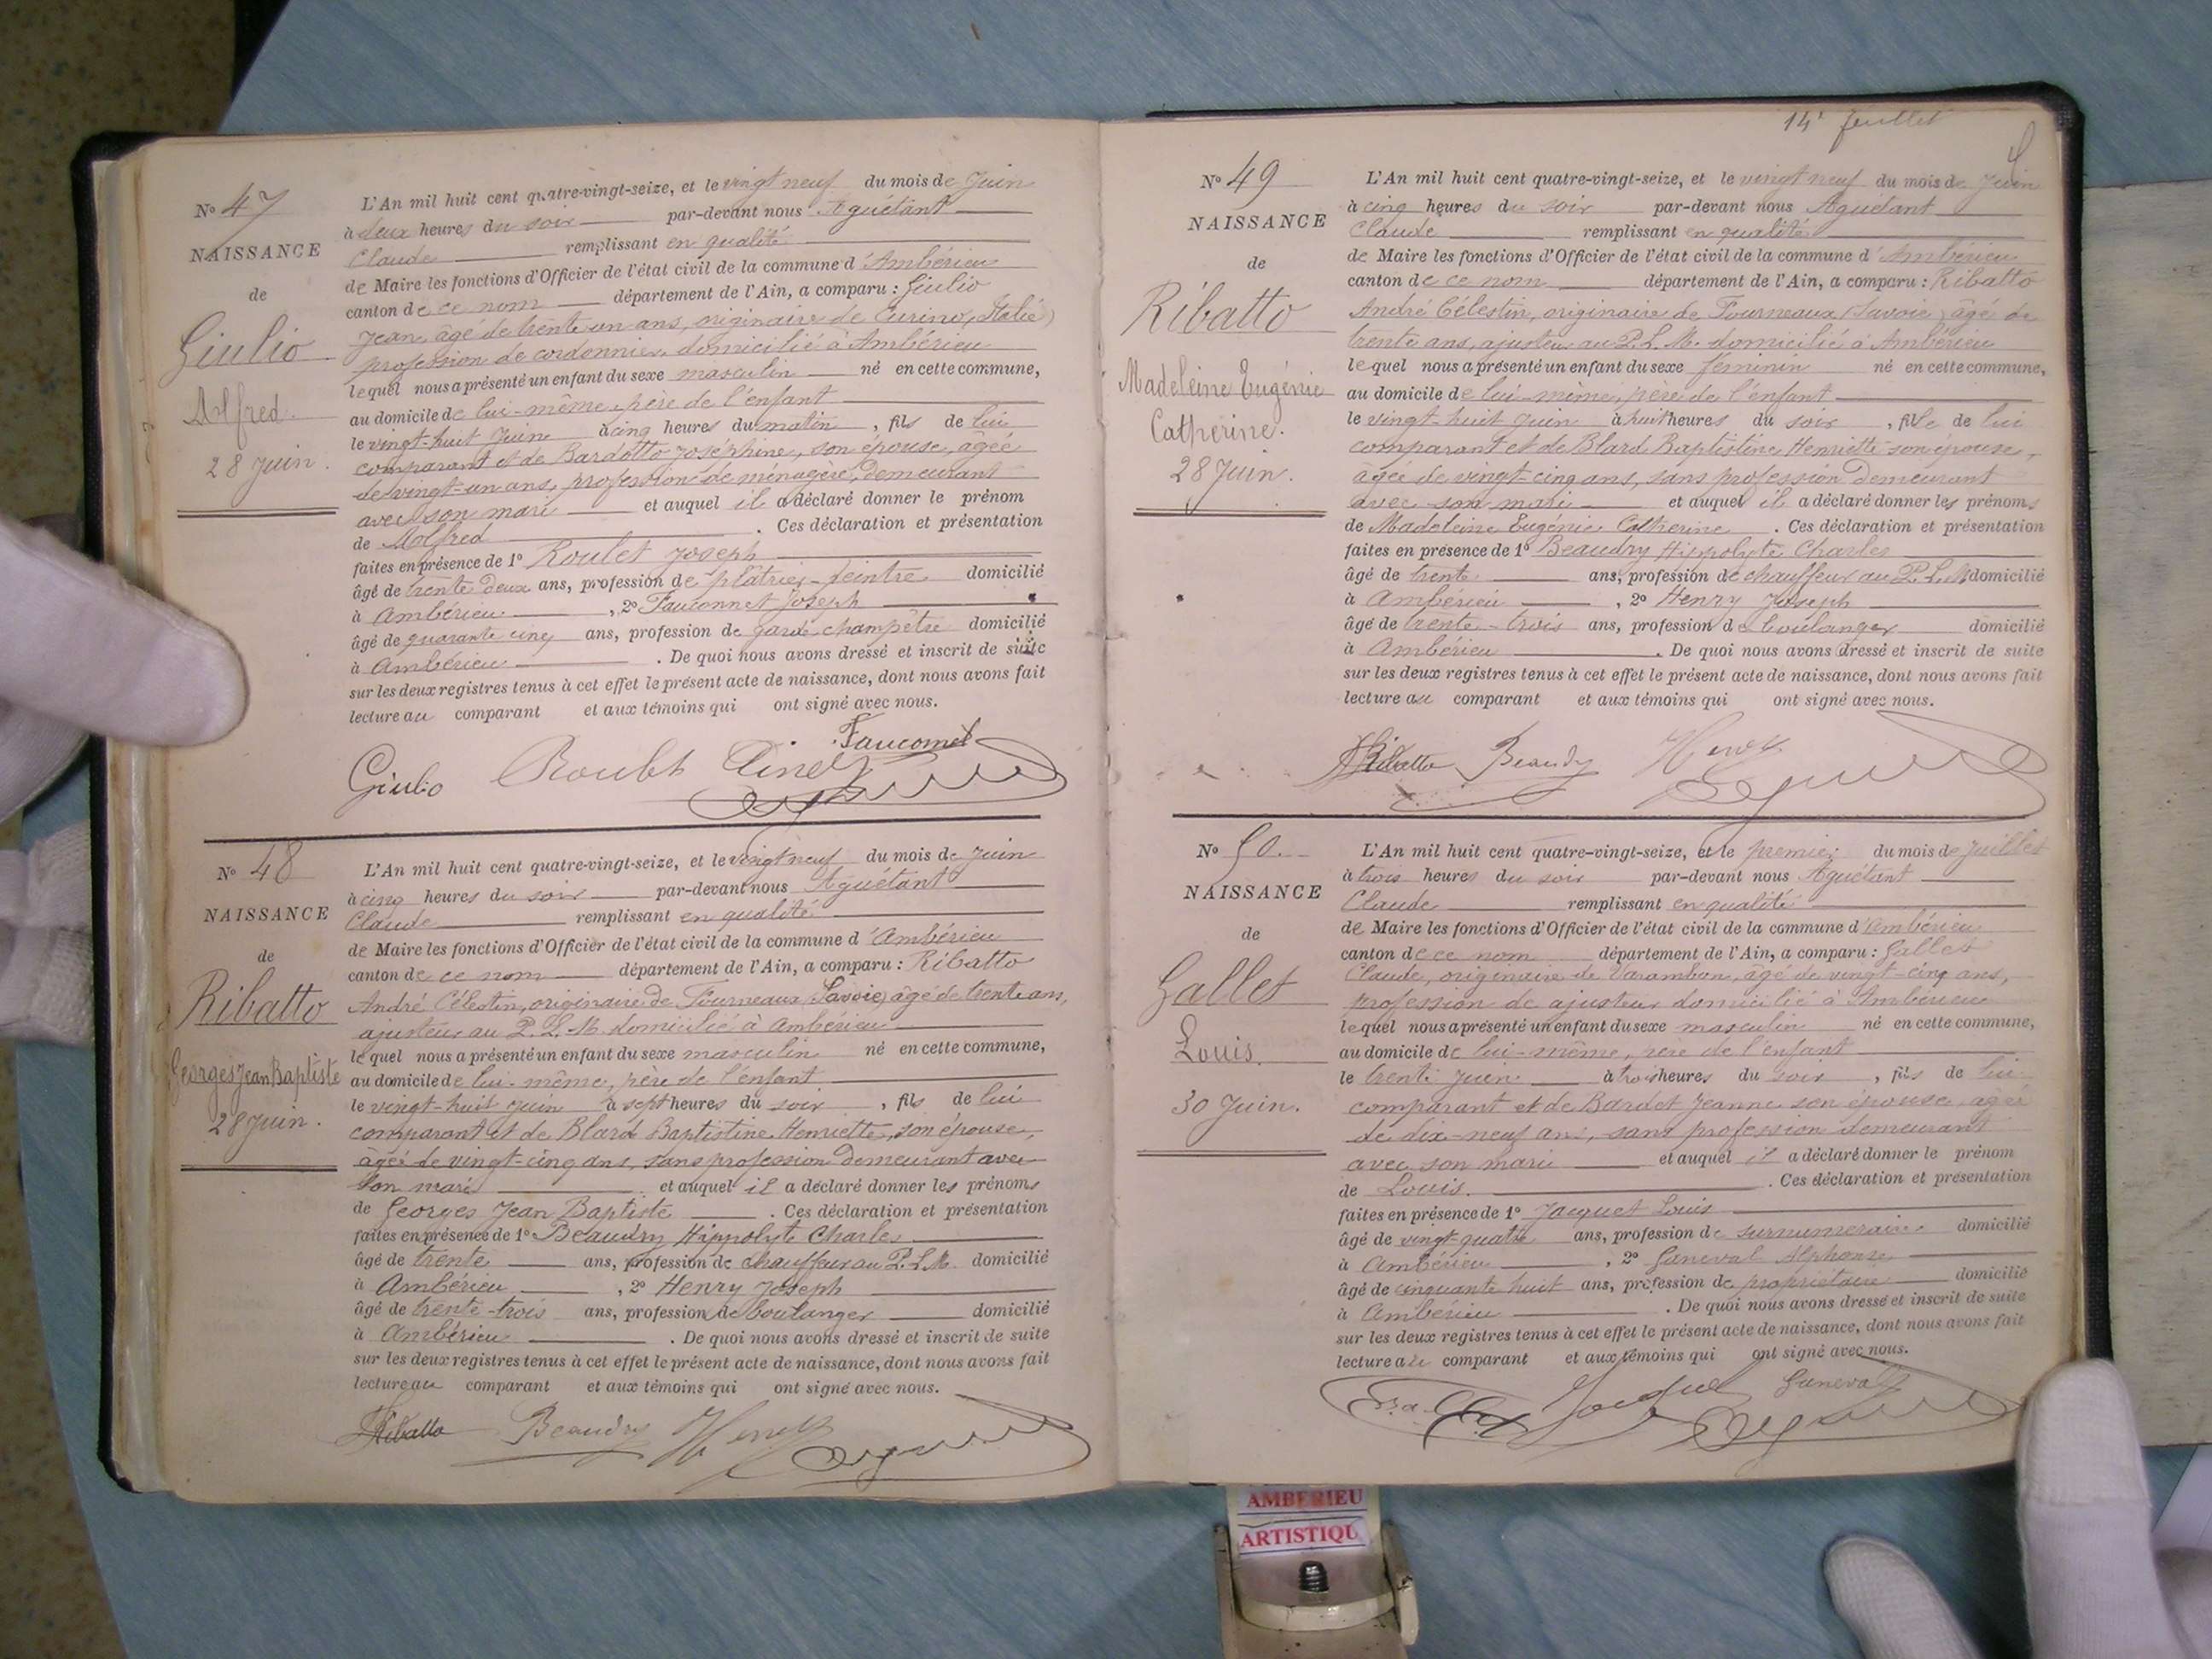 No 47
NAISSANCE
de
Giulio
Alfred
28 Juin.
L'An mil huit cent quatre-vingt-seize, et le vingt neuf du mois de Juin
à deux heures du soir par-devant nous Aguétant
Claude remplissant en qualité
de Maire les fonctions d'Officier de l'état civil de la commune d'Ambérieu
canton de ce nom département de l'Ain, a comparu : Giulio
Jean, âgé de trente un ans, originaire de Curino, (Italie)
profession de cordonnier, domicilié à Ambérieu
lequel nous a présenté un enfant du sexe masculin né en cette commune,
au domicile de lui-même, père de l'enfant
le vingt-huit Juin à cinq heures du matin, fils de lui
comparant et de Bardotto Joséphine, son épouse, âgée
de vingt-un ans, profession de ménagère, demeurant
avec son mari et auquel il a déclaré donner le prénom
de Alfred. Ces déclaration et présentation
faites en présence de 1º Roulet Joseph
âgé de trente deux ans, profession de plâtrier-peintre domicilié
à Ambérieu, 2º Fauconnet Joseph
âgé de quarante cinq ans, profession de garde champêtre domicilié
à Ambérieu. De quoi nous avons dressé et inscrit de suite
sur les deux registres tenus à cet effet le présent acte de naissance, dont nous avons fait
lecture au comparant et aux témoins qui ont signé avec nous.
Giulio Roulet Fauconnet
No 48
NAISSANCE
de
Ribatto
Georges Jean Baptiste
28 Juin.
L'An mil huit cent quatre-vingt-seize, et le vingt neuf du mois de Juin
à cinq heures du soir par-devant nous Aguétant
Claude remplissant en qualité
de Maire les fonctions d'Officier de l'état civil de la commune d'Ambérieu
canton de ce nom département de l'Ain, a comparu : Ribatto
André Célestin, originaire de Fourneaux (Savoie) âgé de trente ans,
ajusteur au P. L. M. domicilié à Ambérieu
lequel nous a présenté un enfant du sexe masculin né en cette commune,
au domicile de lui-même, père de l'enfant
le vingt-huit Juin à sept heures du soir, fils de lui
comparant et de Blard Baptistine Henriette, son épouse,
âgée de vingt-cinq ans, sans profession demeurant avec
son mari et auquel il a déclaré donner les prénoms
de Georges Jean Baptiste. Ces déclaration et présentation
faites en présence de 1º Beaudry Hippolyte Charles
âgé de trente ans, profession de chauffeur au P. L. M. domicilié
à Ambérieu, 2º Henry Joseph
âgé de trente-trois ans, profession de boulanger domicilié
à Ambérieu. De quoi nous avons dressé et inscrit de suite
sur les deux registres tenus à cet effet le présent acte de naissance, dont nous avons fait
lecture au comparant et aux témoins qui ont signé avec nous.
Ribatto Beaudry Henry
14e feuillet
No 49
NAISSANCE
de
Ribatto
Madeleine Eugénie
Catherine.
28 Juin.
L'An mil huit cent quatre-vingt-seize, et le vingt neuf du mois de Juin
à cinq heures du soir par-devant nous Aguétant
Claude remplissant en qualité
de Maire les fonctions d'Officier de l'état civil de la commune d'Ambérieu
canton de ce nom département de l'Ain, a comparu : Ribatto
André Célestin, originaire de Fourneaux (Savoie) âgé de
trente ans, ajusteur au P. L. M. domicilié à Ambérieu
lequel nous a présenté un enfant du sexe féminin né en cette commune,
au domicile de lui-même, père de l'enfant
le vingt-huit Juin à huit heures du soir, fille de lui
comparant et de Blard Baptistine Henriette son épouse,
âgée de vingt-cinq ans, sans profession demeurant
avec son mari et auquel il a déclaré donner les prénoms
de Madeleine Eugénie Catherine. Ces déclaration et présentation
faites en présence de 1º Beaudry Hippolyte Charles
âgé de trente ans, profession de chauffeur au P. L. M domicilié
à Ambérieu, 2º Henry Joseph
âgé de trente-trois ans, profession de boulanger domicilié
à Ambérieu. De quoi nous avons dressé et inscrit de suite
sur les deux registres tenus à cet effet le présent acte de naissance, dont nous avons fait
lecture au comparant et aux témoins qui ont signé avec nous.
Ribatto Beaudry Henry
No 50.
NAISSANCE
de
Gallet
Louis.
30 Juin.
L'An mil huit cent quatre-vingt-seize, et le premier du mois de Juillet
à trois heures du soir par-devant nous Aguétant
Claude remplissant en qualité
de Maire les fonctions d'Officier de l'état civil de la commune d'Ambérieu
canton de ce nom département de l'Ain, a comparu : Gallet
Claude, originaire de Varambon, âgé de vingt-cinq ans,
profession de ajusteur domicilié à Ambérieu
lequel nous a présenté un enfant du sexe masculin né en cette commune,
au domicile de lui-même, père de l'enfant
le trente Juin à trois heures du soir, fils de lui
comparant et de Bardet Jeanne son épouse, âgée
de dix-neuf ans, sans profession demeurant
avec son mari et auquel il a déclaré donner le prénom
de Louis. Ces déclaration et présentation
faites en présence de 1º Jacquet Louis
âgé de vingt-quatre ans, profession de surnuméraire domicilié
à Ambérieu, 2º Ganeval Alphonse
âgé de cinquante huit ans, profession de propriétaire domicilié
à Ambérieu. De quoi nous avons dressé et inscrit de suite
sur les deux registres tenus à cet effet le présent acte de naissance, dont nous avons fait
lecture au comparant et aux témoins qui ont signé avec nous.
Jacquet Ganeval
AMBERIEU
ARTISTIQU